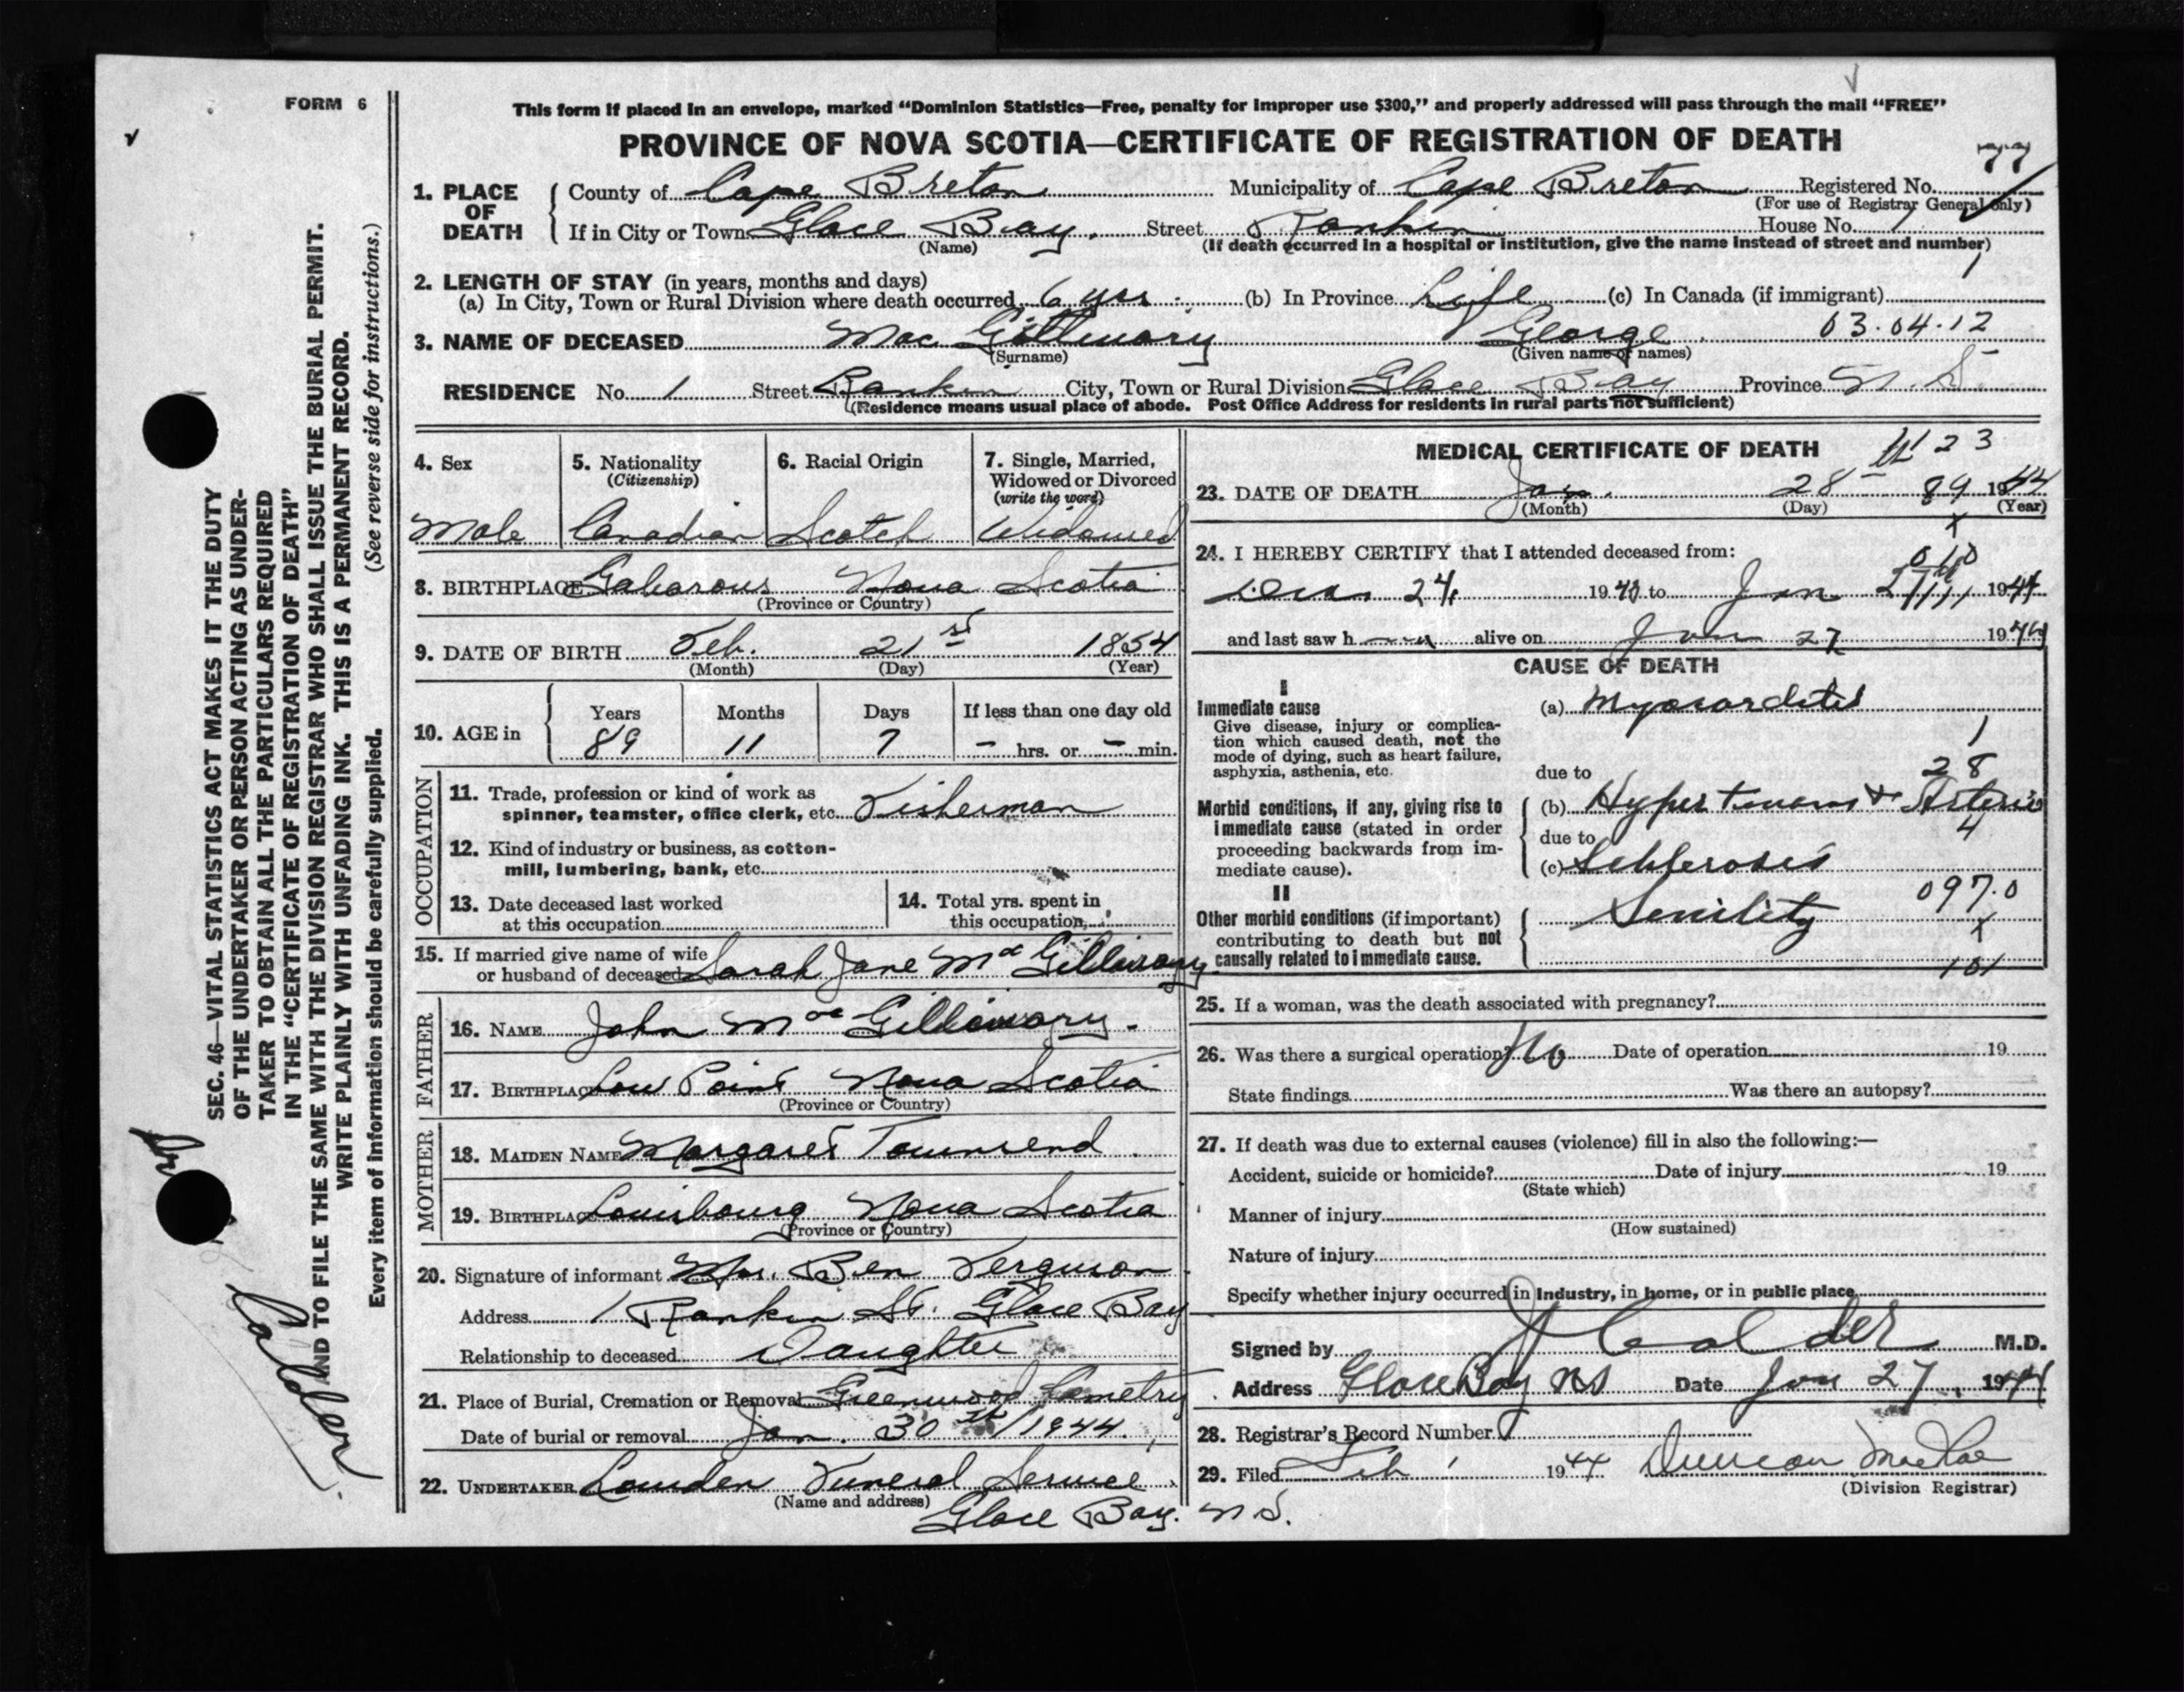 FORM 6
This form if placed in an envelope, marked “Dominion Statistics—Free, penalty for improper use $300,” and properly addressed will pass through the mail “FREE”
PROVINCE OF NOVA SCOTIA—CERTIFICATE OF REGISTRATION OF DEATH
77
1. PLACE OF DEATH County of Cape Breton Municipality of Cape Breton Registered No.
(For use of Registrar General only)
If in City or Town Glace Bay. Street Rankin House No. 1
(Name) (If death occurred in a hospital or institution, give the name instead of street and number)
1
2. LENGTH OF STAY (in years, months and days)
(a) In City, Town or Rural Division where death occurred 6 yrs. (b) In Province Life (c) In Canada (if immigrant)
3. NAME OF DECEASED George 03.04.12
(Surname) (Given name or names)
RESIDENCE No. 1 Street Rankin City, Town or Rural Division Glace Bay Province N.S.
(Residence means usual place of abode. Post Office Address for residents in rural parts not sufficient)
4. Sex 5. Nationality (Citizenship) 6. Racial Origin 7. Single, Married, Widowed or Divorced (write the word)
Male Canadian Scotch Widowed
8. BIRTHPLACE Gabarous Nova Scotia
(Province or Country)
9. DATE OF BIRTH Feb. 21st 1854
(Month) (Day) (Year)
10. AGE in Years Months Days If less than one day old
89 11 7 – hrs. or – min.
OCCUPATION
11. Trade, profession or kind of work as spinner, teamster, office clerk, etc. Fisherman
12. Kind of industry or business, as cotton-mill, lumbering, bank, etc.
13. Date deceased last worked at this occupation
14. Total yrs. spent in this occupation
15. If married give name of wife or husband of deceased Sarah Jane
FATHER
16. NAME John
17. BIRTHPLACE Low Point Nova Scotia
(Province or Country)
MOTHER
18. MAIDEN NAME Margaret Townsend
19. BIRTHPLACE Louisbourg Nova Scotia
(Province or Country)
20. Signature of informant Mrs. Ben Ferguson
Address 1 Rankin St. Glace Bay
Relationship to deceased Daughter
21. Place of Burial, Cremation or Removal Greenwood Cemetry
Date of burial or removal Jan. 30th/1944.
22. UNDERTAKER Funeral Service
(Name and address) Glace Bay. N.S.
MEDICAL CERTIFICATE OF DEATH
23
23. DATE OF DEATH Jan. 28th 89 1944
(Month) (Day) (Year)
x
24. I HEREBY CERTIFY that I attended deceased from:
24 1943 to Jan 1944
and last saw h alive on Jan 27 1944
CAUSE OF DEATH
I
Immediate cause (a) Myocarditis
Give disease, injury or complication which caused death, not the mode of dying, such as heart failure, asphyxia, asthenia, etc.
1
28
due to
Morbid conditions, if any, giving rise to immediate cause (stated in order proceeding backwards from immediate cause).
(b) & Arterio
4
due to
(c)
II
Other morbid conditions (if important) contributing to death but not causally related to immediate cause.
Senility 097.0
x
101
25. If a woman, was the death associated with pregnancy?
26. Was there a surgical operation? No Date of operation 19
State findings Was there an autopsy?
27. If death was due to external causes (violence) fill in also the following:—
Accident, suicide or homicide? Date of injury 19
(State which)
Manner of injury
(How sustained)
Nature of injury
Specify whether injury occurred in industry, in home, or in public place
Signed by J Calder M.D.
Address Glace Bay NS Date Jan 27, 1944
28. Registrar's Record Number 7
29. Filed Feb 1 1944 Duncan MacRae
(Division Registrar)
SEC. 46—VITAL STATISTICS ACT MAKES IT THE DUTY
OF THE UNDERTAKER OR PERSON ACTING AS UNDER-
TAKER TO OBTAIN ALL THE PARTICULARS REQUIRED
IN THE “CERTIFICATE OF REGISTRATION OF DEATH”
AND TO FILE THE SAME WITH THE DIVISION REGISTRAR WHO SHALL ISSUE THE BURIAL PERMIT.
WRITE PLAINLY WITH UNFADING INK. THIS IS A PERMANENT RECORD.
Every item of information should be carefully supplied. (See reverse side for instructions.)
Calder